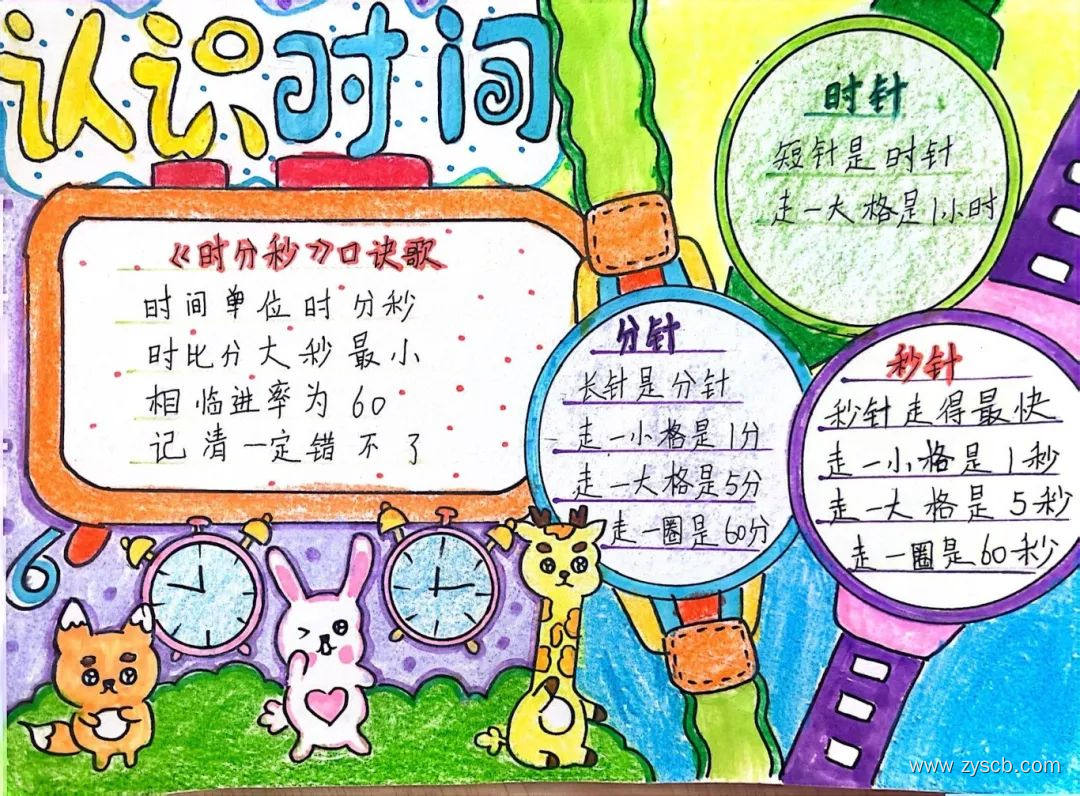 认识时间
《时分秒》口诀歌
时间单位时分秒
时比分大秒最小
相临进率为60
记清一定错不了
时针
短针是时针
走一大格是1小时
分针
长针是分针
走一小格是1分
走一大格是5分
走一圈是60分
秒针
秒针走得最快
走一小格是1秒
走一大格是5秒
走一圈是60秒
6
www.zyscb.com